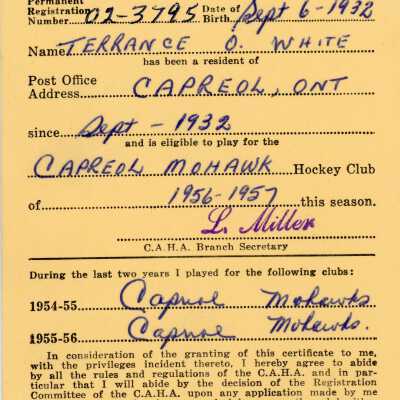 Permanent
Registration Date of
Number 02-3795 Birth Sept 6-1932
Name TERRANCE O. WHITE
has been a resident of
Post Office
Address CAPREOL, ONT
since Sept - 1932
and is eligible to play for the
CAPREOL MOHAWK Hockey Club
of 1956-1957 this season.
L. Miller
C.A.H.A. Branch Secretary
During the last two years I played for the following clubs:
1954-55 Capreol Mohawks
1955-56 Capreol Mohawks.
In consideration of the granting of this certificate to me,
with the privileges incident thereto, I hereby agree to abide
by all the rules and regulations of the C.A.H.A. and in par-
ticular that I will abide by the decision of the Registration
Committee of the C.A.H.A. upon any application made by me